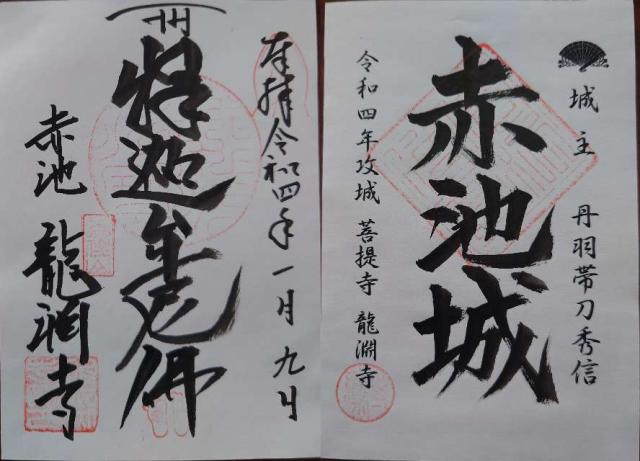 奉拝 令和四年一月九日
釈迦牟尼佛
赤池 龍渕寺
城主 丹羽帯刀秀信
赤池城
令和四年攻城 菩提寺 龍淵寺